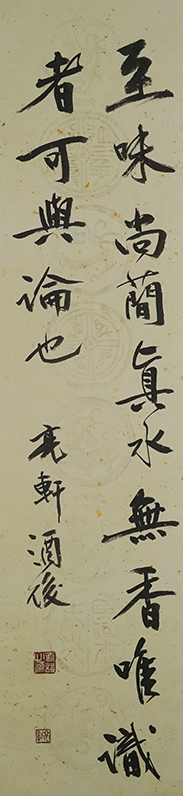 至味尚蕑真水無香唯識
者可與論也
亮軒酒後